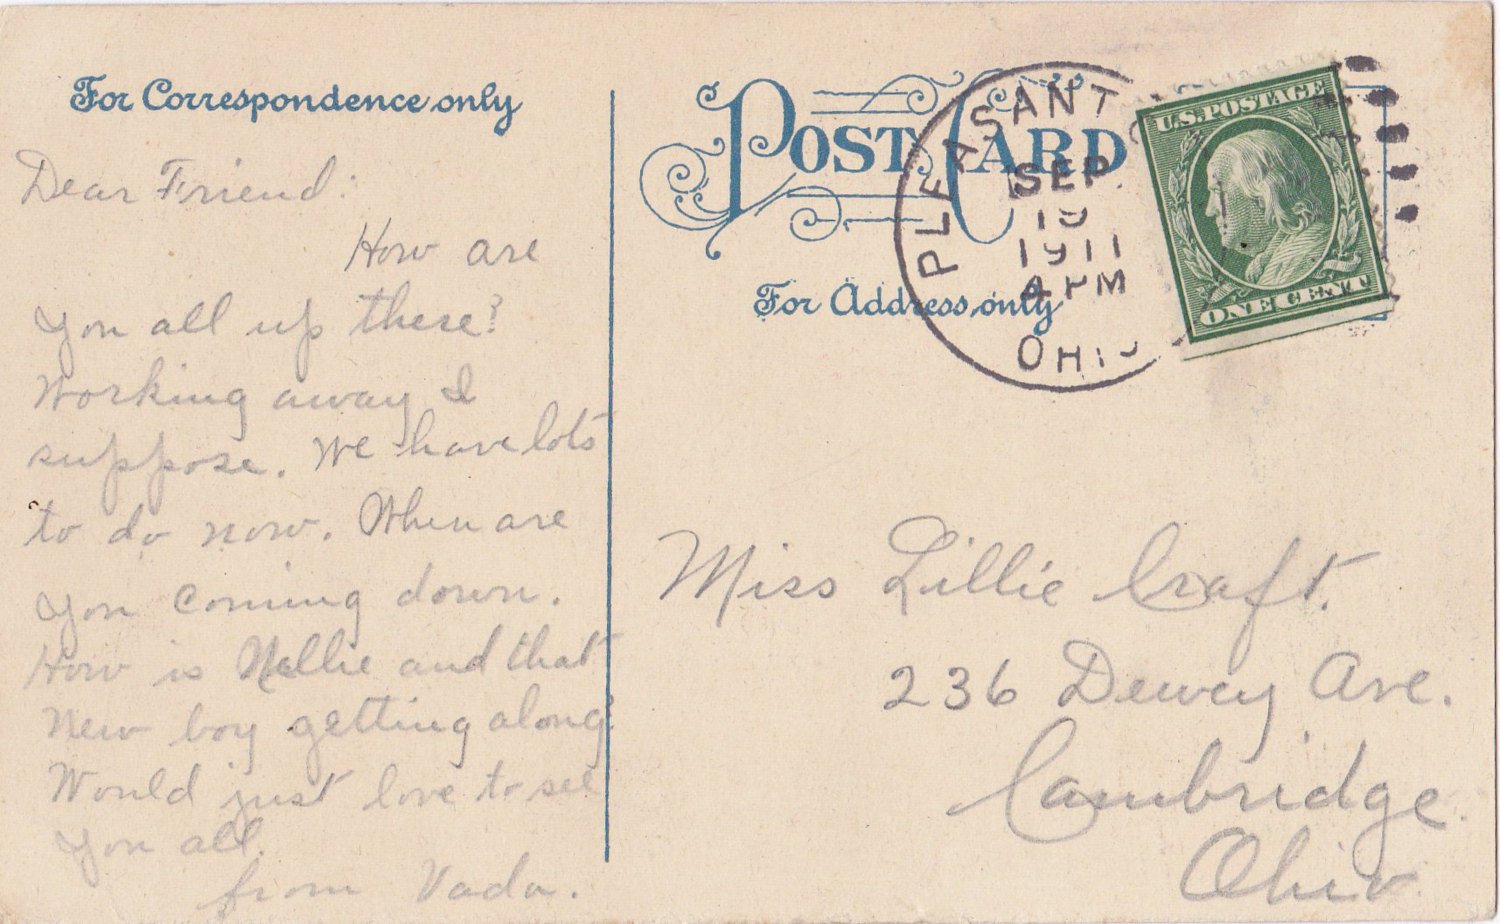 For Correspondence only
Dear Friend:
How are
you all up there?
Working away I
suppose. We have lots
to do now. When are
you coming down.
How is Nellie and that
New boy getting along?
Would just love to see
you all.
from Vada.
POST CARD
For Address only
PLEASANT
SEP.
1911
4 PM
OHIO
U.S. POSTAGE
ONE CENT
Miss Lillie Craft.
236 Dewey Ave.
Cambridge
Ohio